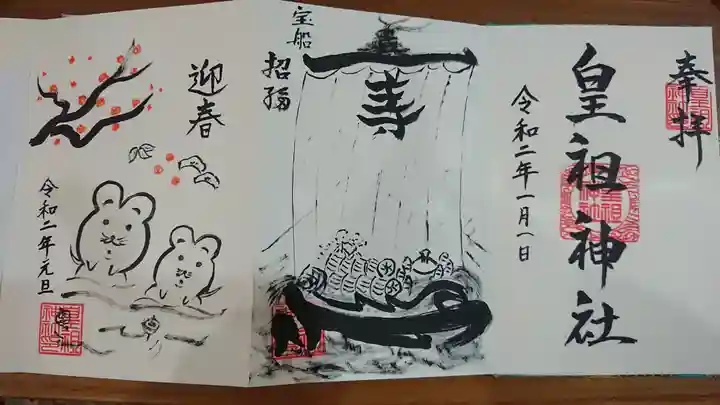 奉拝
皇祖神社
令和二年一月一日
宝船
招福
寿
迎春
令和二年元旦